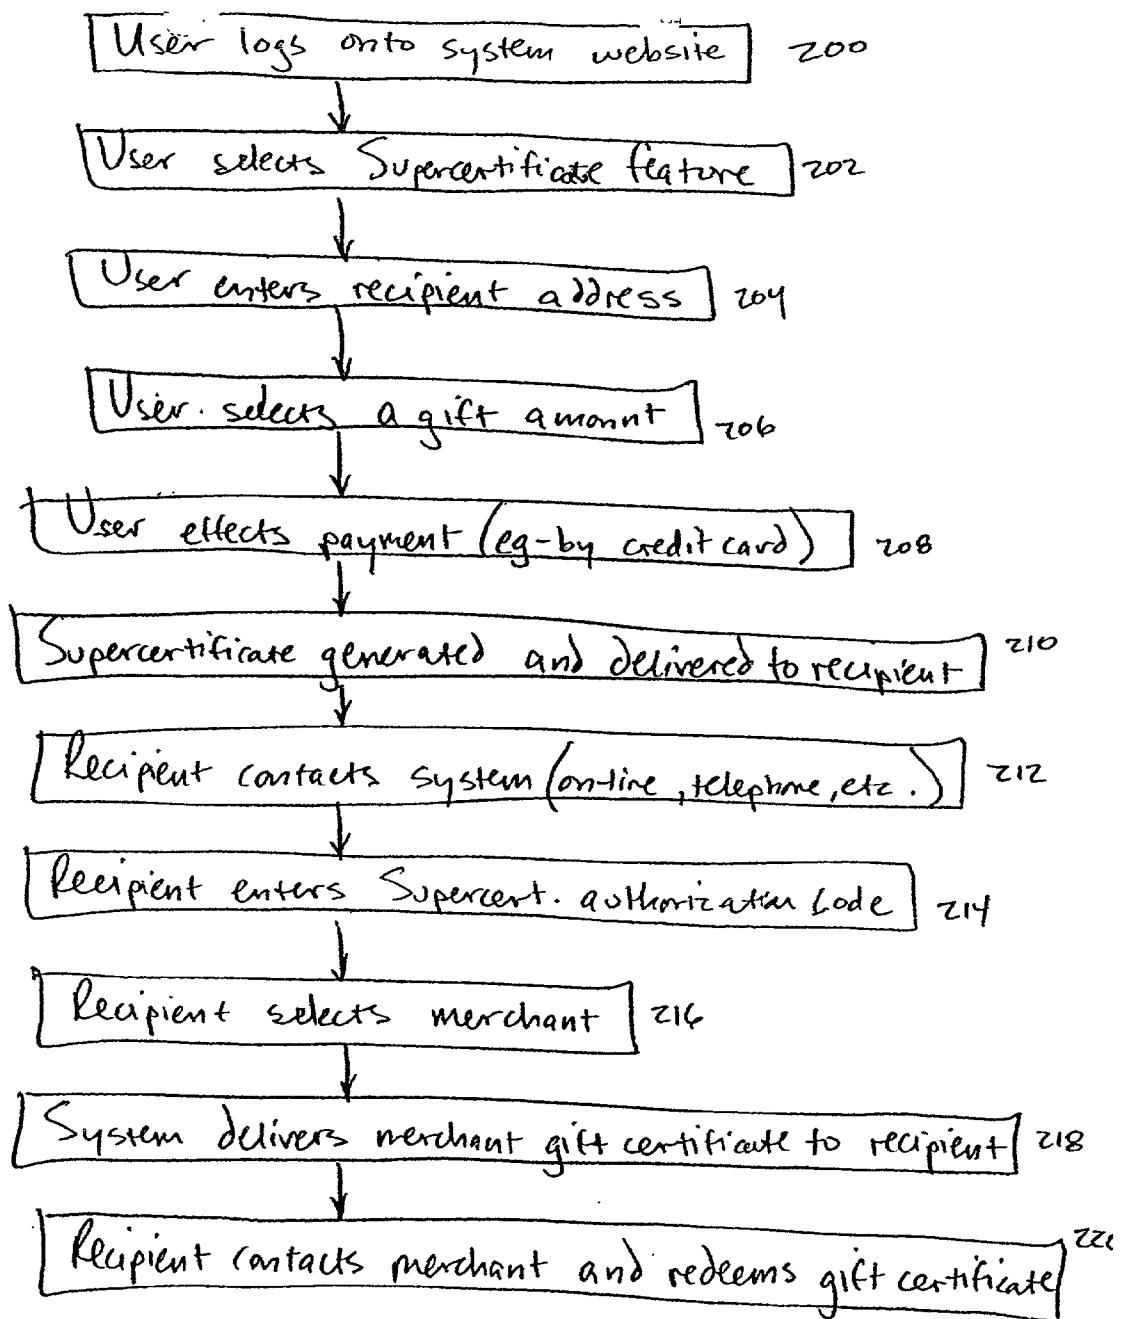 User logs onto system website 200
User selects Supercertificate feature 202
User enters recipient address 204
User selects a gift amount 206
User effects payment (eg-by credit card) 208
Supercertificate generated and delivered to recipient 210
Recipient contacts system (on-line, telephone, etc.) 212
Recipient enters Supercert. authorization code 214
Recipient selects merchant 216
System delivers merchant gift certificate to recipient 218
Recipient contacts merchant and redeems gift certificate